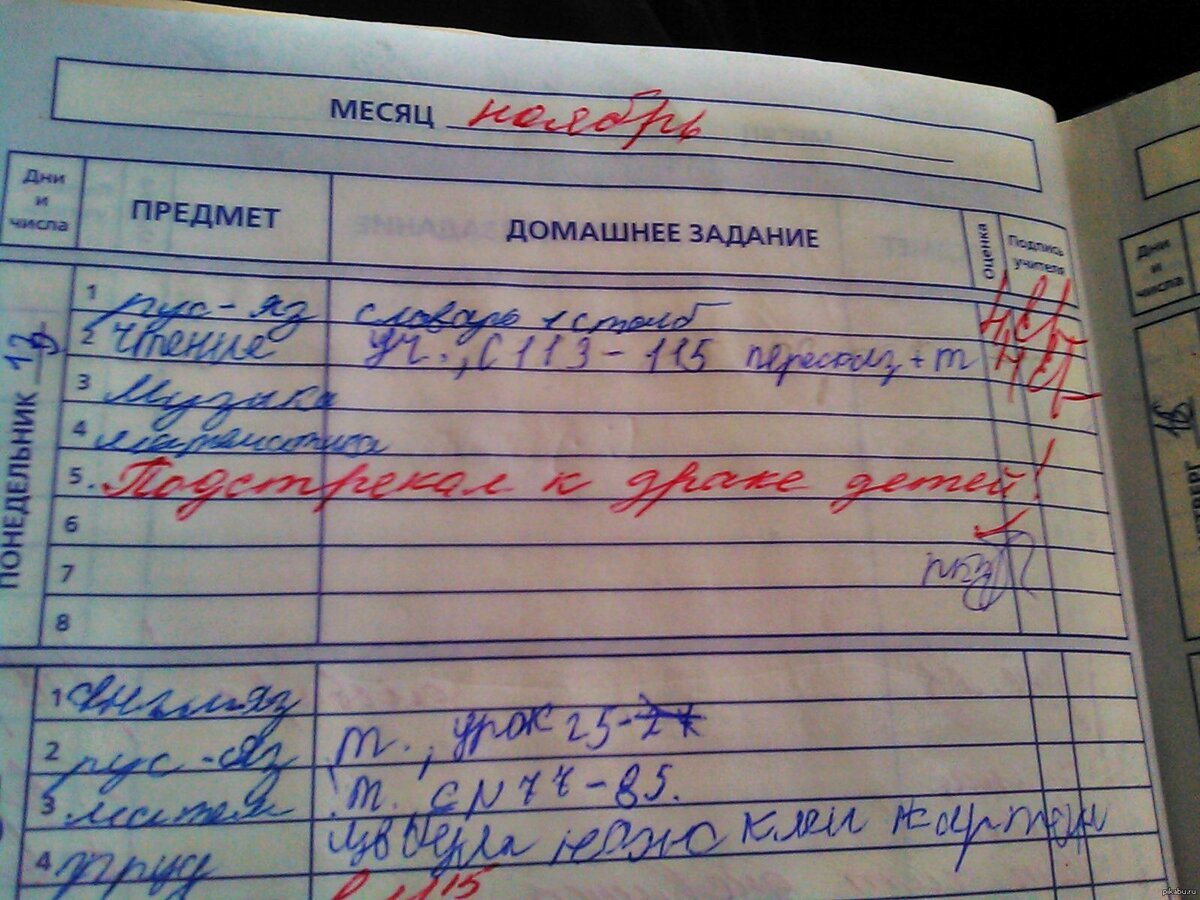 МЕСЯЦ ноябрь
Дни и числа ПРЕДМЕТ ДОМАШНЕЕ ЗАДАНИЕ Оценка Подпись учителя
ПОНЕДЕЛЬНИК
1 рус-яз словарь 1 столб
2 Чтение уч., С 113-115 пересказ + т
3 Музыка
4 математика
5. Подстрекал к драке детей!
6
7
8
1 англ-яз
2 рус-яз т., урок 25-
3 матем т. с
4 труд нож клей картон
Дни и числа
18
pikabu.ru